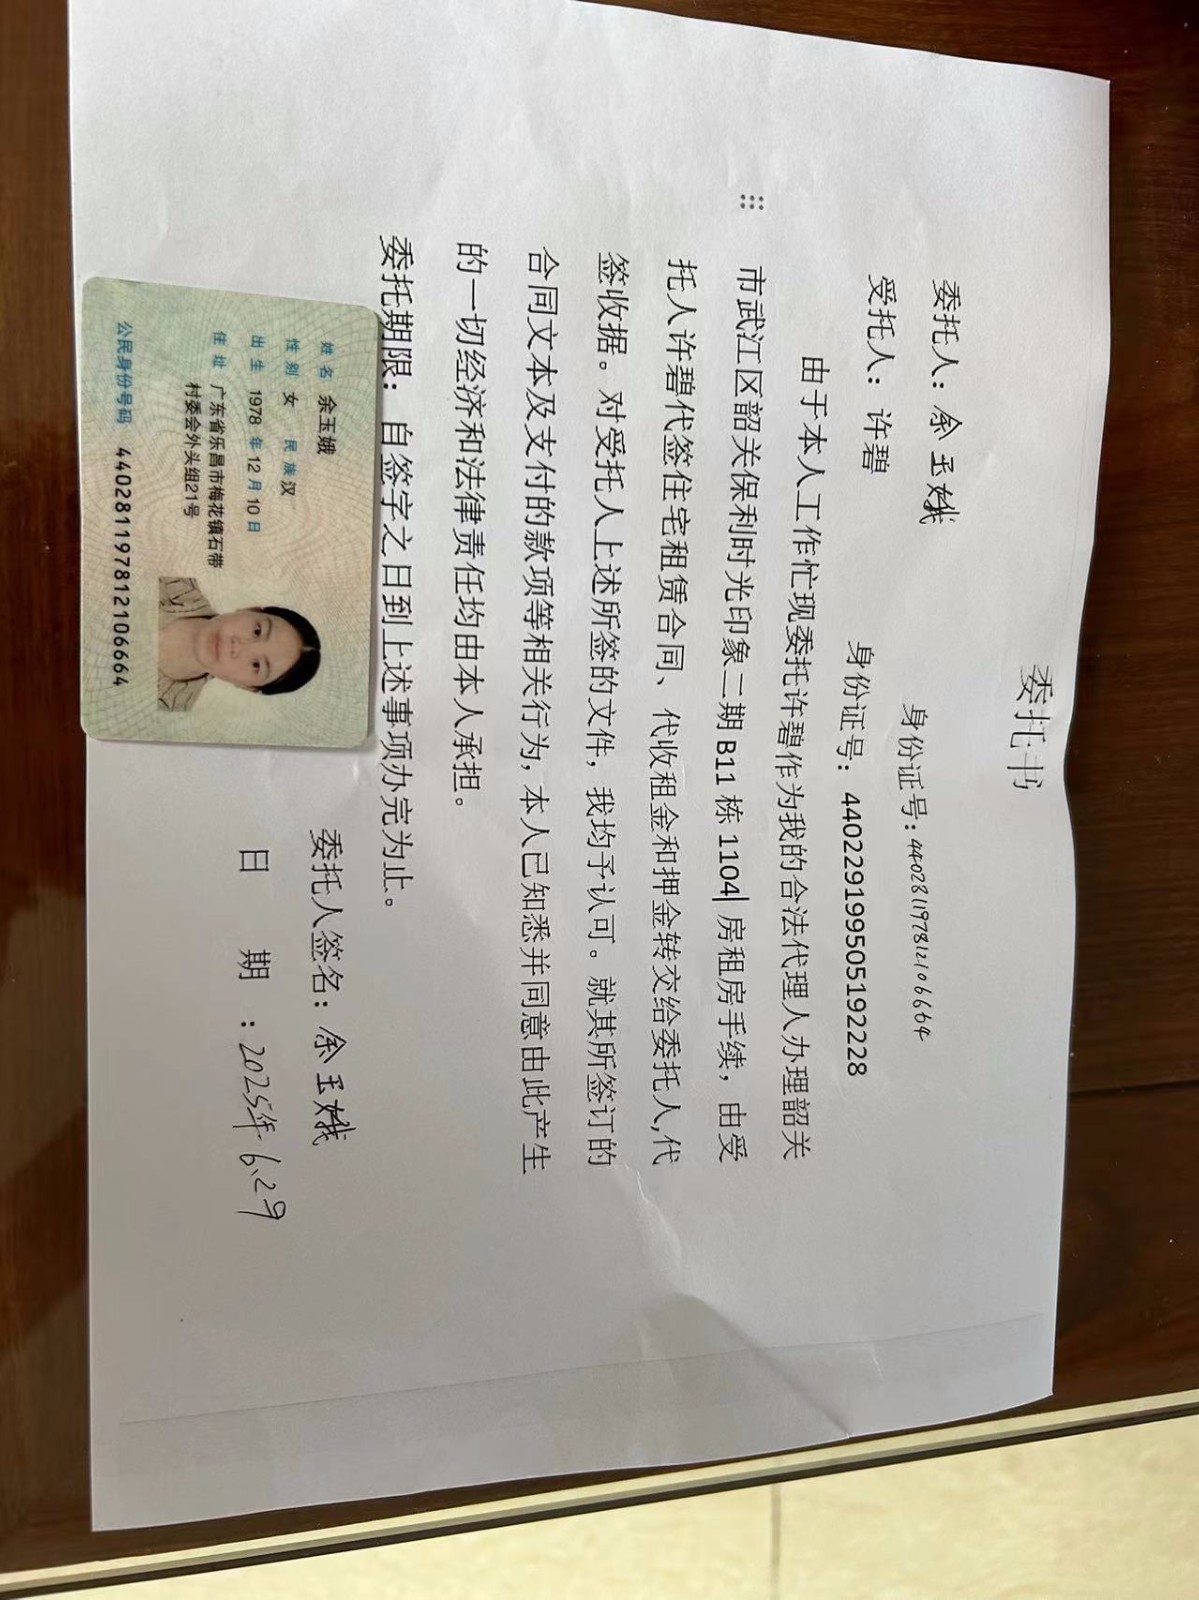 委托书
委托人：余玉娥 身份证号：440281197812106664
受托人：许碧 身份证号：440229199505192228
由于本人工作忙现委托许碧作为我的合法代理人办理韶关
市武江区韶关保利时光印象二期 B11 栋 1104 房租房手续，由受
托人许碧代签住宅租赁合同、代收租金和押金转交给委托人,代
签收据。对受托人上述所签的文件，我均予认可。就其所签订的
合同文本及支付的款项等相关行为，本人已知悉并同意由此产生
的一切经济和法律责任均由本人承担。
委托期限：自签字之日到上述事项办完为止。
委托人签名：余玉娥
日 期：2025年6.29
姓名 余玉娥
性别 女 民族 汉
出生 1978 年 12 月 10 日
住址 广东省乐昌市梅花镇石带
村委会外头组21号
公民身份号码 440281197812106664